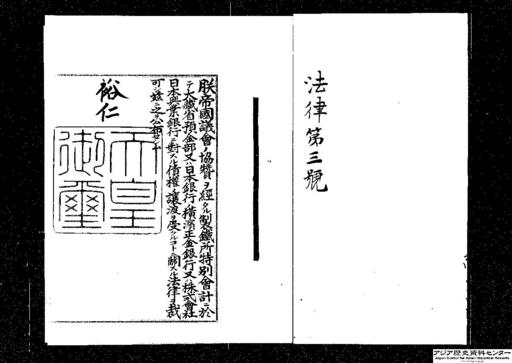 法律第三號
朕帝國議會ノ協贊ヲ經タル製鐵所特別會計ニ於
テ大藏省預金部又ハ日本銀行、横濱正金銀行又ハ株式會社
日本興業銀行ニ對スル債權ノ讓渡ヲ受クルコトニ關スル法律ヲ裁
可シ茲ニ之ヲ公布セシム
裕仁
天皇
御璽
アジア歴史資料センター
Japan Center for Asian Historical Records